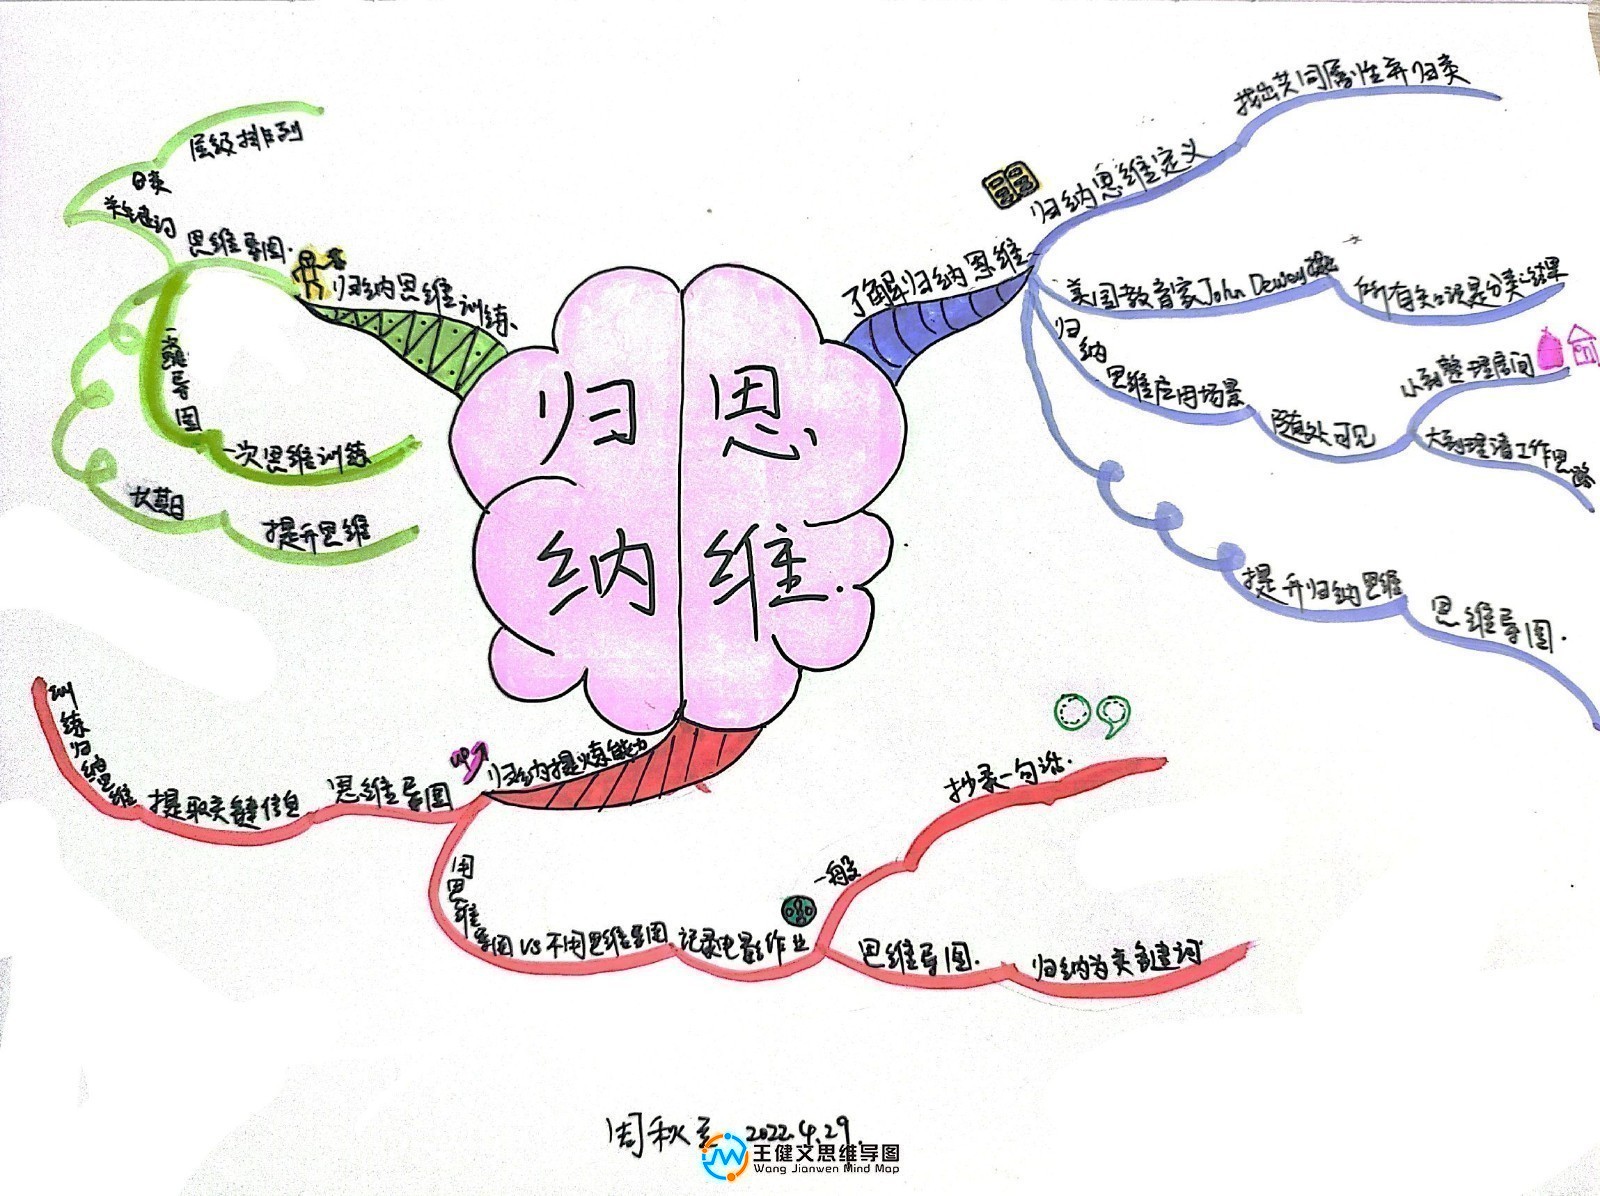 归 思
纳 维.
了解归纳思维
归纳思维定义
找出共同属性并归类
美国教育家John Dewey
所有知识是分类的结果
归纳思维应用场景
随处可见
小到整理房间
大到理清工作思路
提升归纳思维
思维导图.
归纳提炼能力
UP
思维导图
提取关键信息
训练归纳思维
用思维导图 VS 不用思维导图
记录电影作业
一般
抄录一句话.
思维导图.
归纳为关键词
归纳思维训练
思维导图.
关键词
归类
层级排列
一次思维导图
一次思维训练
长期
提升思维
周秋
2022.4.29.
王健文思维导图
Wang Jianwen Mind Map